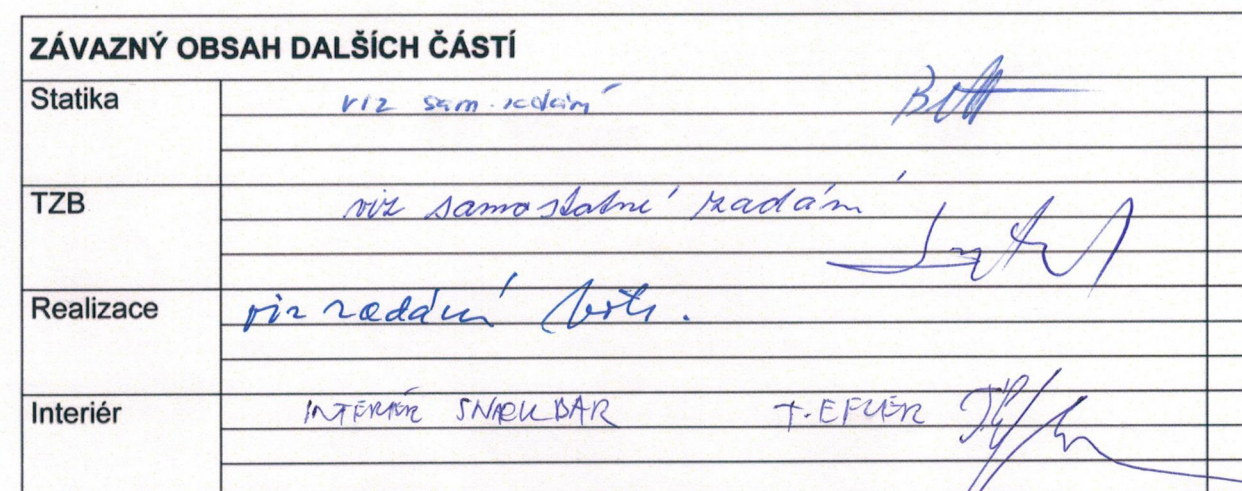 ZÁVAZNÝ OBSAH DALŠÍCH ČÁSTÍ
Statika viz sam. zadání
TZB viz samostatné zadání
Realizace viz zadání
Interiér INTERIÉR SNACKBAR T. EFLER